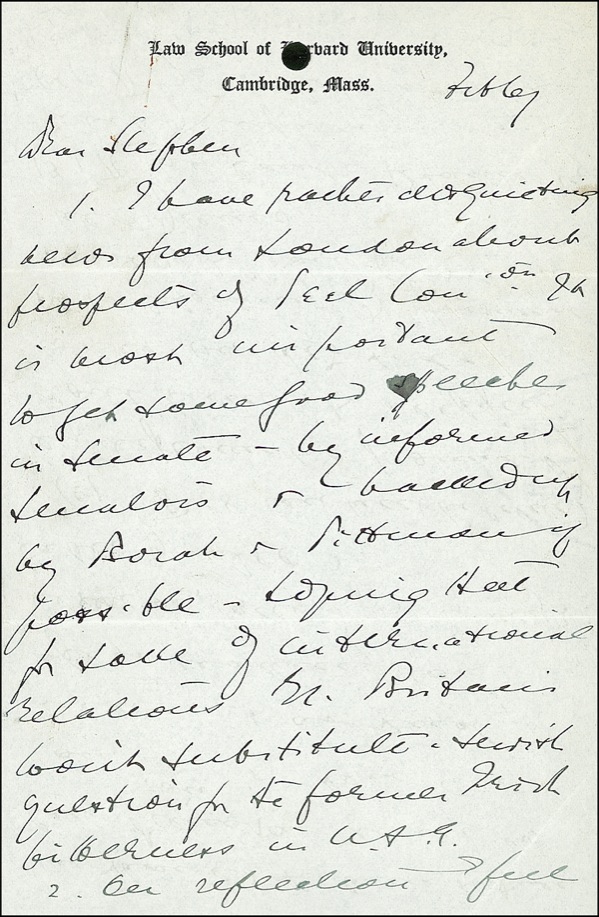 Law School of Harvard University,
Cambridge, Mass.
Dear Stephen
1. I have rather disquieting
news from London about
prospects of Peel Com'on. It
is most important
to get some good speeches
in Senate – by informed
Senators & backed up
by Borah & Pittman if
possible – hoping that
for sake of international
relations Gr. Britain
won't substitute a Jewish
question for the former Irish
bitterness in U.S.A.
2. On reflection I feel